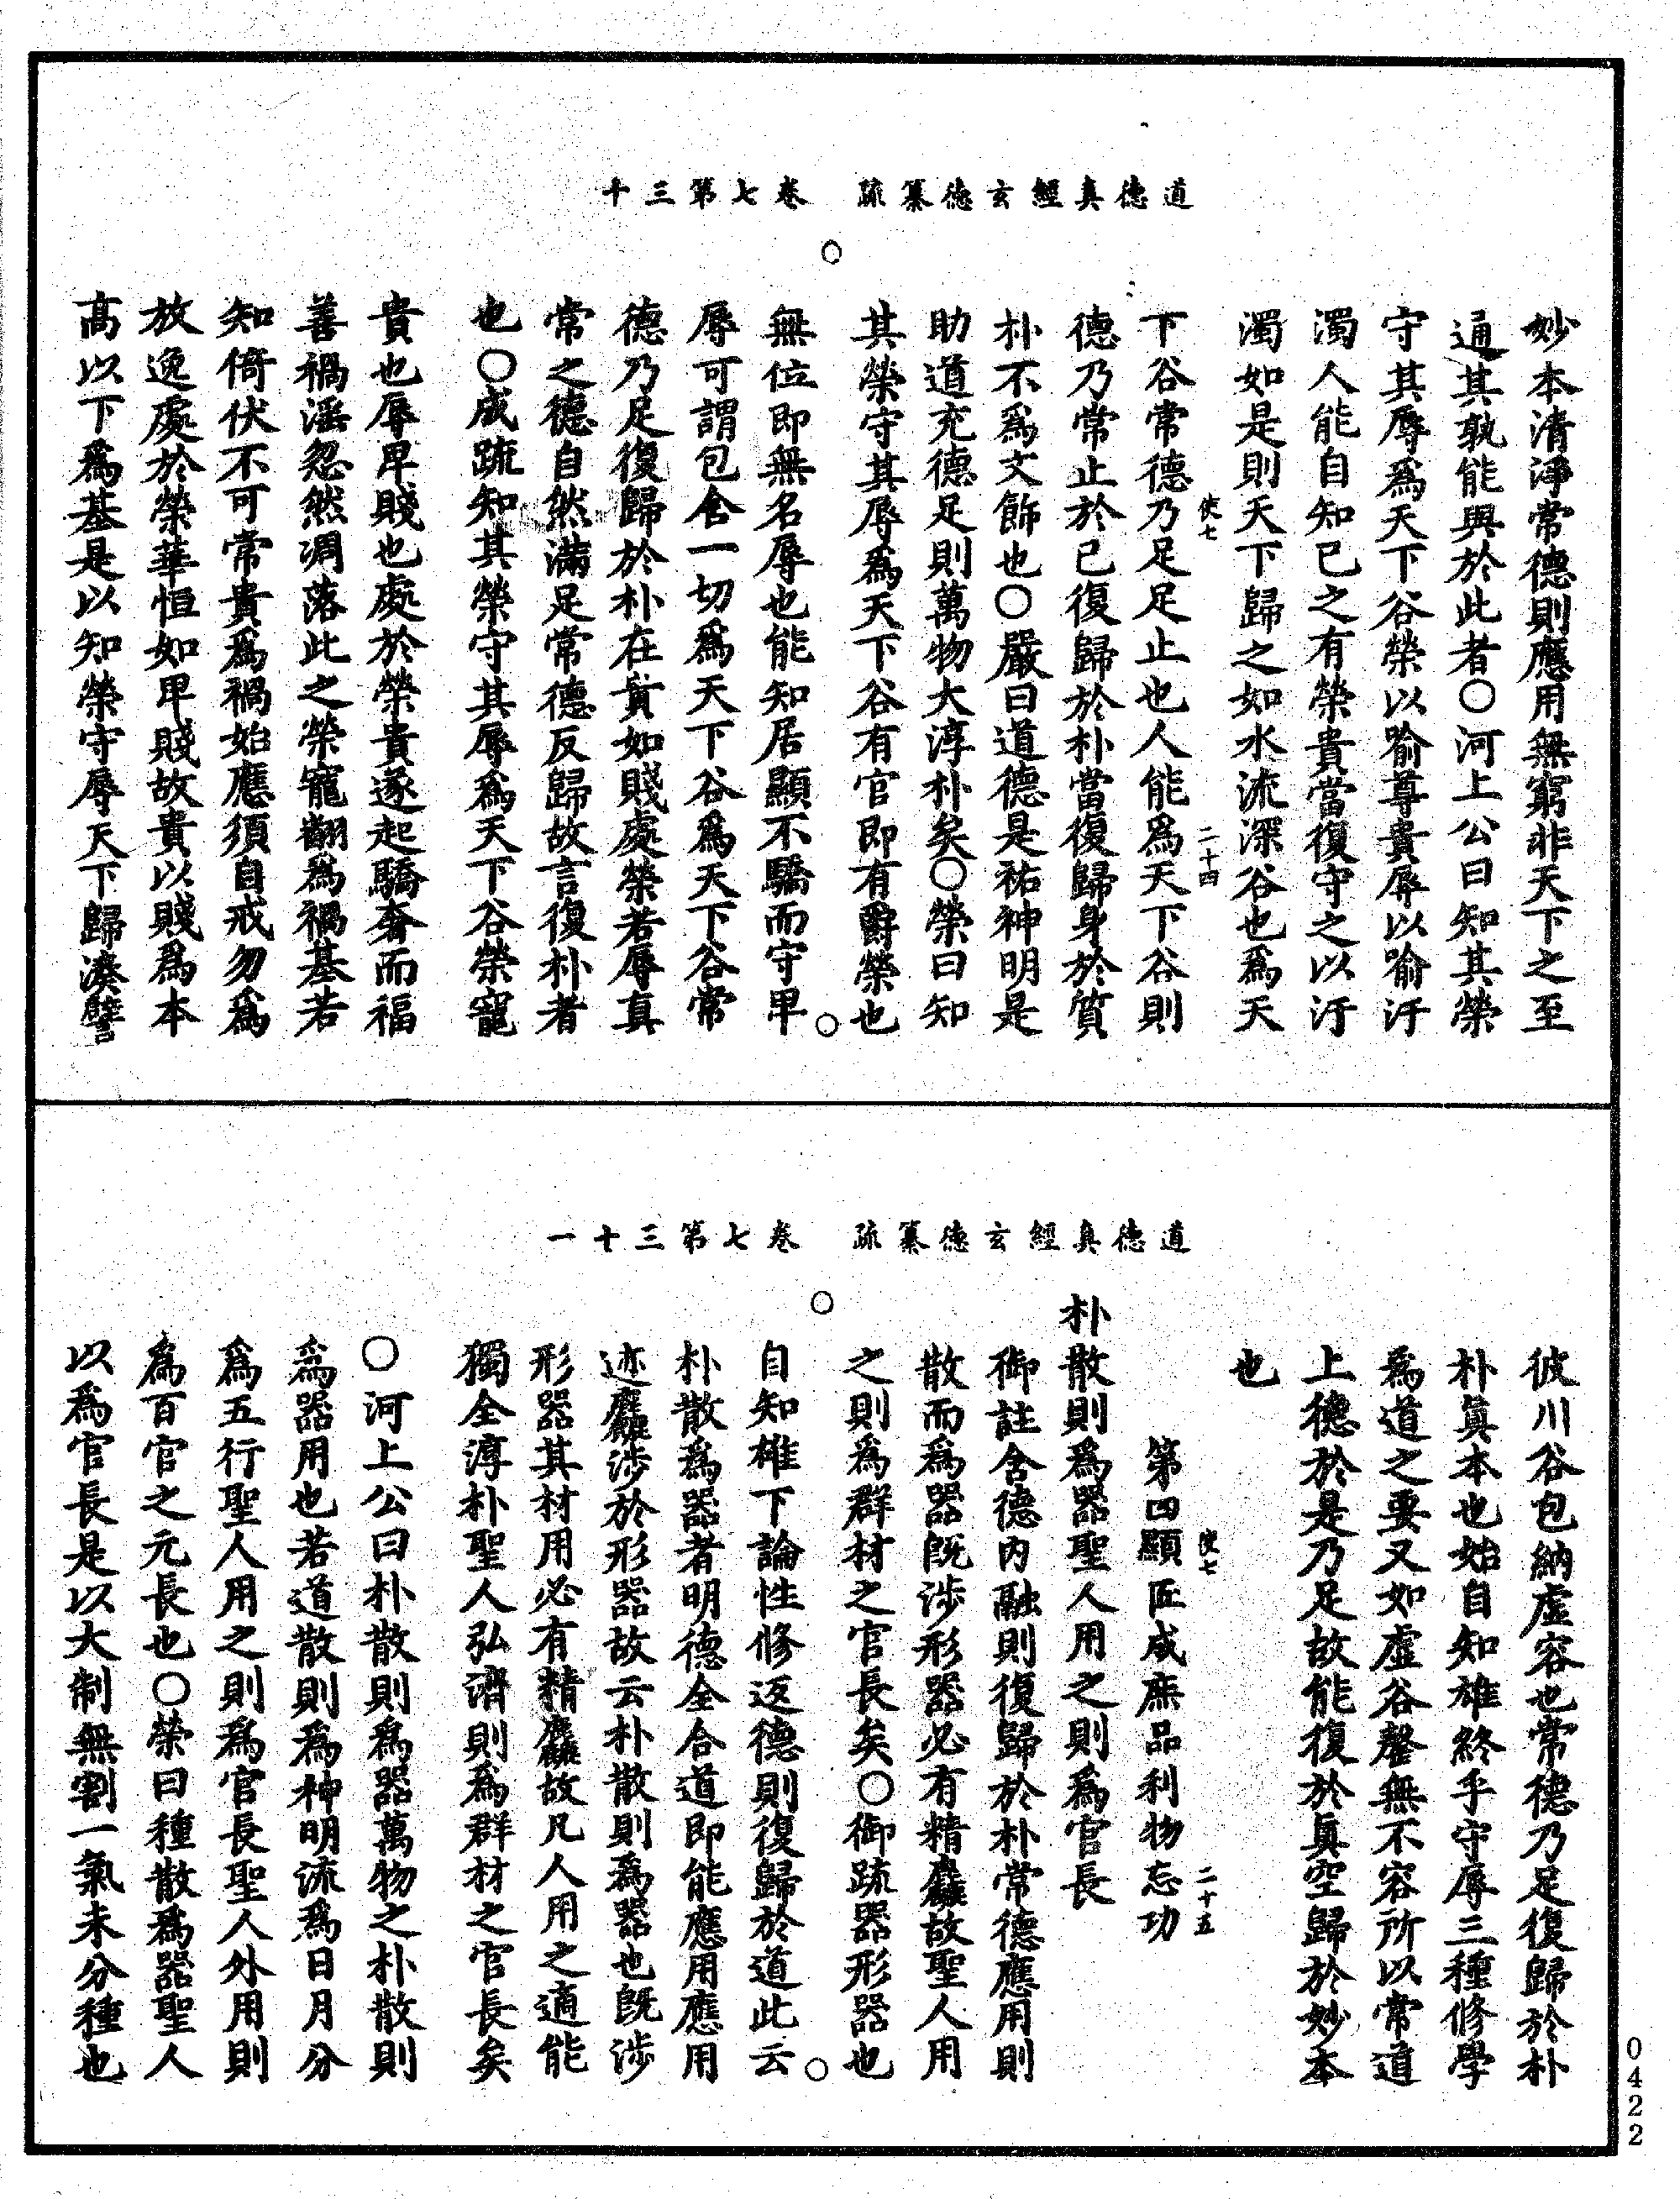 道德真經玄德纂疏　卷七第三十
妙本清淨常德則應用無窮非天下之至
通其孰能與於此者○河上公曰知其榮
守其辱爲天下谷榮以喻尊貴辱以喻汙
濁人能自知已之有榮貴當復守之以汙
濁如是則天下歸之如水流深谷也爲天
使七　二十四
下谷常德乃足足止也人能爲天下谷則
德乃常止於已復歸於朴當復歸身於質
朴不爲文飾也○嚴曰道德是祐神明是
助道充德足則萬物大淳朴矣○榮曰知
其榮守其辱爲天下谷有官即有爵榮也
無位即無名辱也能知居顯不驕而守卑
辱可謂包含一切爲天下谷爲天下谷常
德乃足復歸於朴在貴如賤處榮若辱真
常之德自然滿足常德反歸故言復朴者
也○成疏知其榮守其辱爲天下谷榮寵
貴也辱卑賤也處於榮貴遂起驕奢而福
善禍淫忽然凋落此之榮寵翻爲禍基若
知倚伏不可常貴爲禍始應須自戒勿爲
放逸處於榮華恒如卑賤故貴以賤爲本
高以下爲基是以知榮守辱天下歸湊譬
道德真經玄德纂疏　卷七第三十一
彼川谷包納虛容也常德乃足復歸於朴
朴眞本也始自知雄終乎守辱三種修學
爲道之要又如虛谷罄無不容所以常道
上德於是乃足故能復於眞空歸於妙本
也
使七　二十五
第四顯匠成庶品利物忘功
朴散則爲器聖人用之則爲官長
御註含德內融則復歸於朴常德應用則
散而爲器既涉形器必有精麤故聖人用
之則爲群材之官長矣○御疏器形器也
自知雄下論性修返德則復歸於道此云
朴散爲器者明德全合道即能應用應用
迹麤涉於形器故云朴散則爲器也既涉
形器其材用必有精麤故凡人用之適能
獨全淳朴聖人弘濟則爲群材之官長矣
○河上公曰朴散則爲器萬物之朴散則
爲器用也若道散則爲神明流爲日月分
爲五行聖人用之則爲官長聖人外用則
爲百官之元長也○榮曰種散爲器聖人
以爲官長是以大制無割一氣未分種也
0422